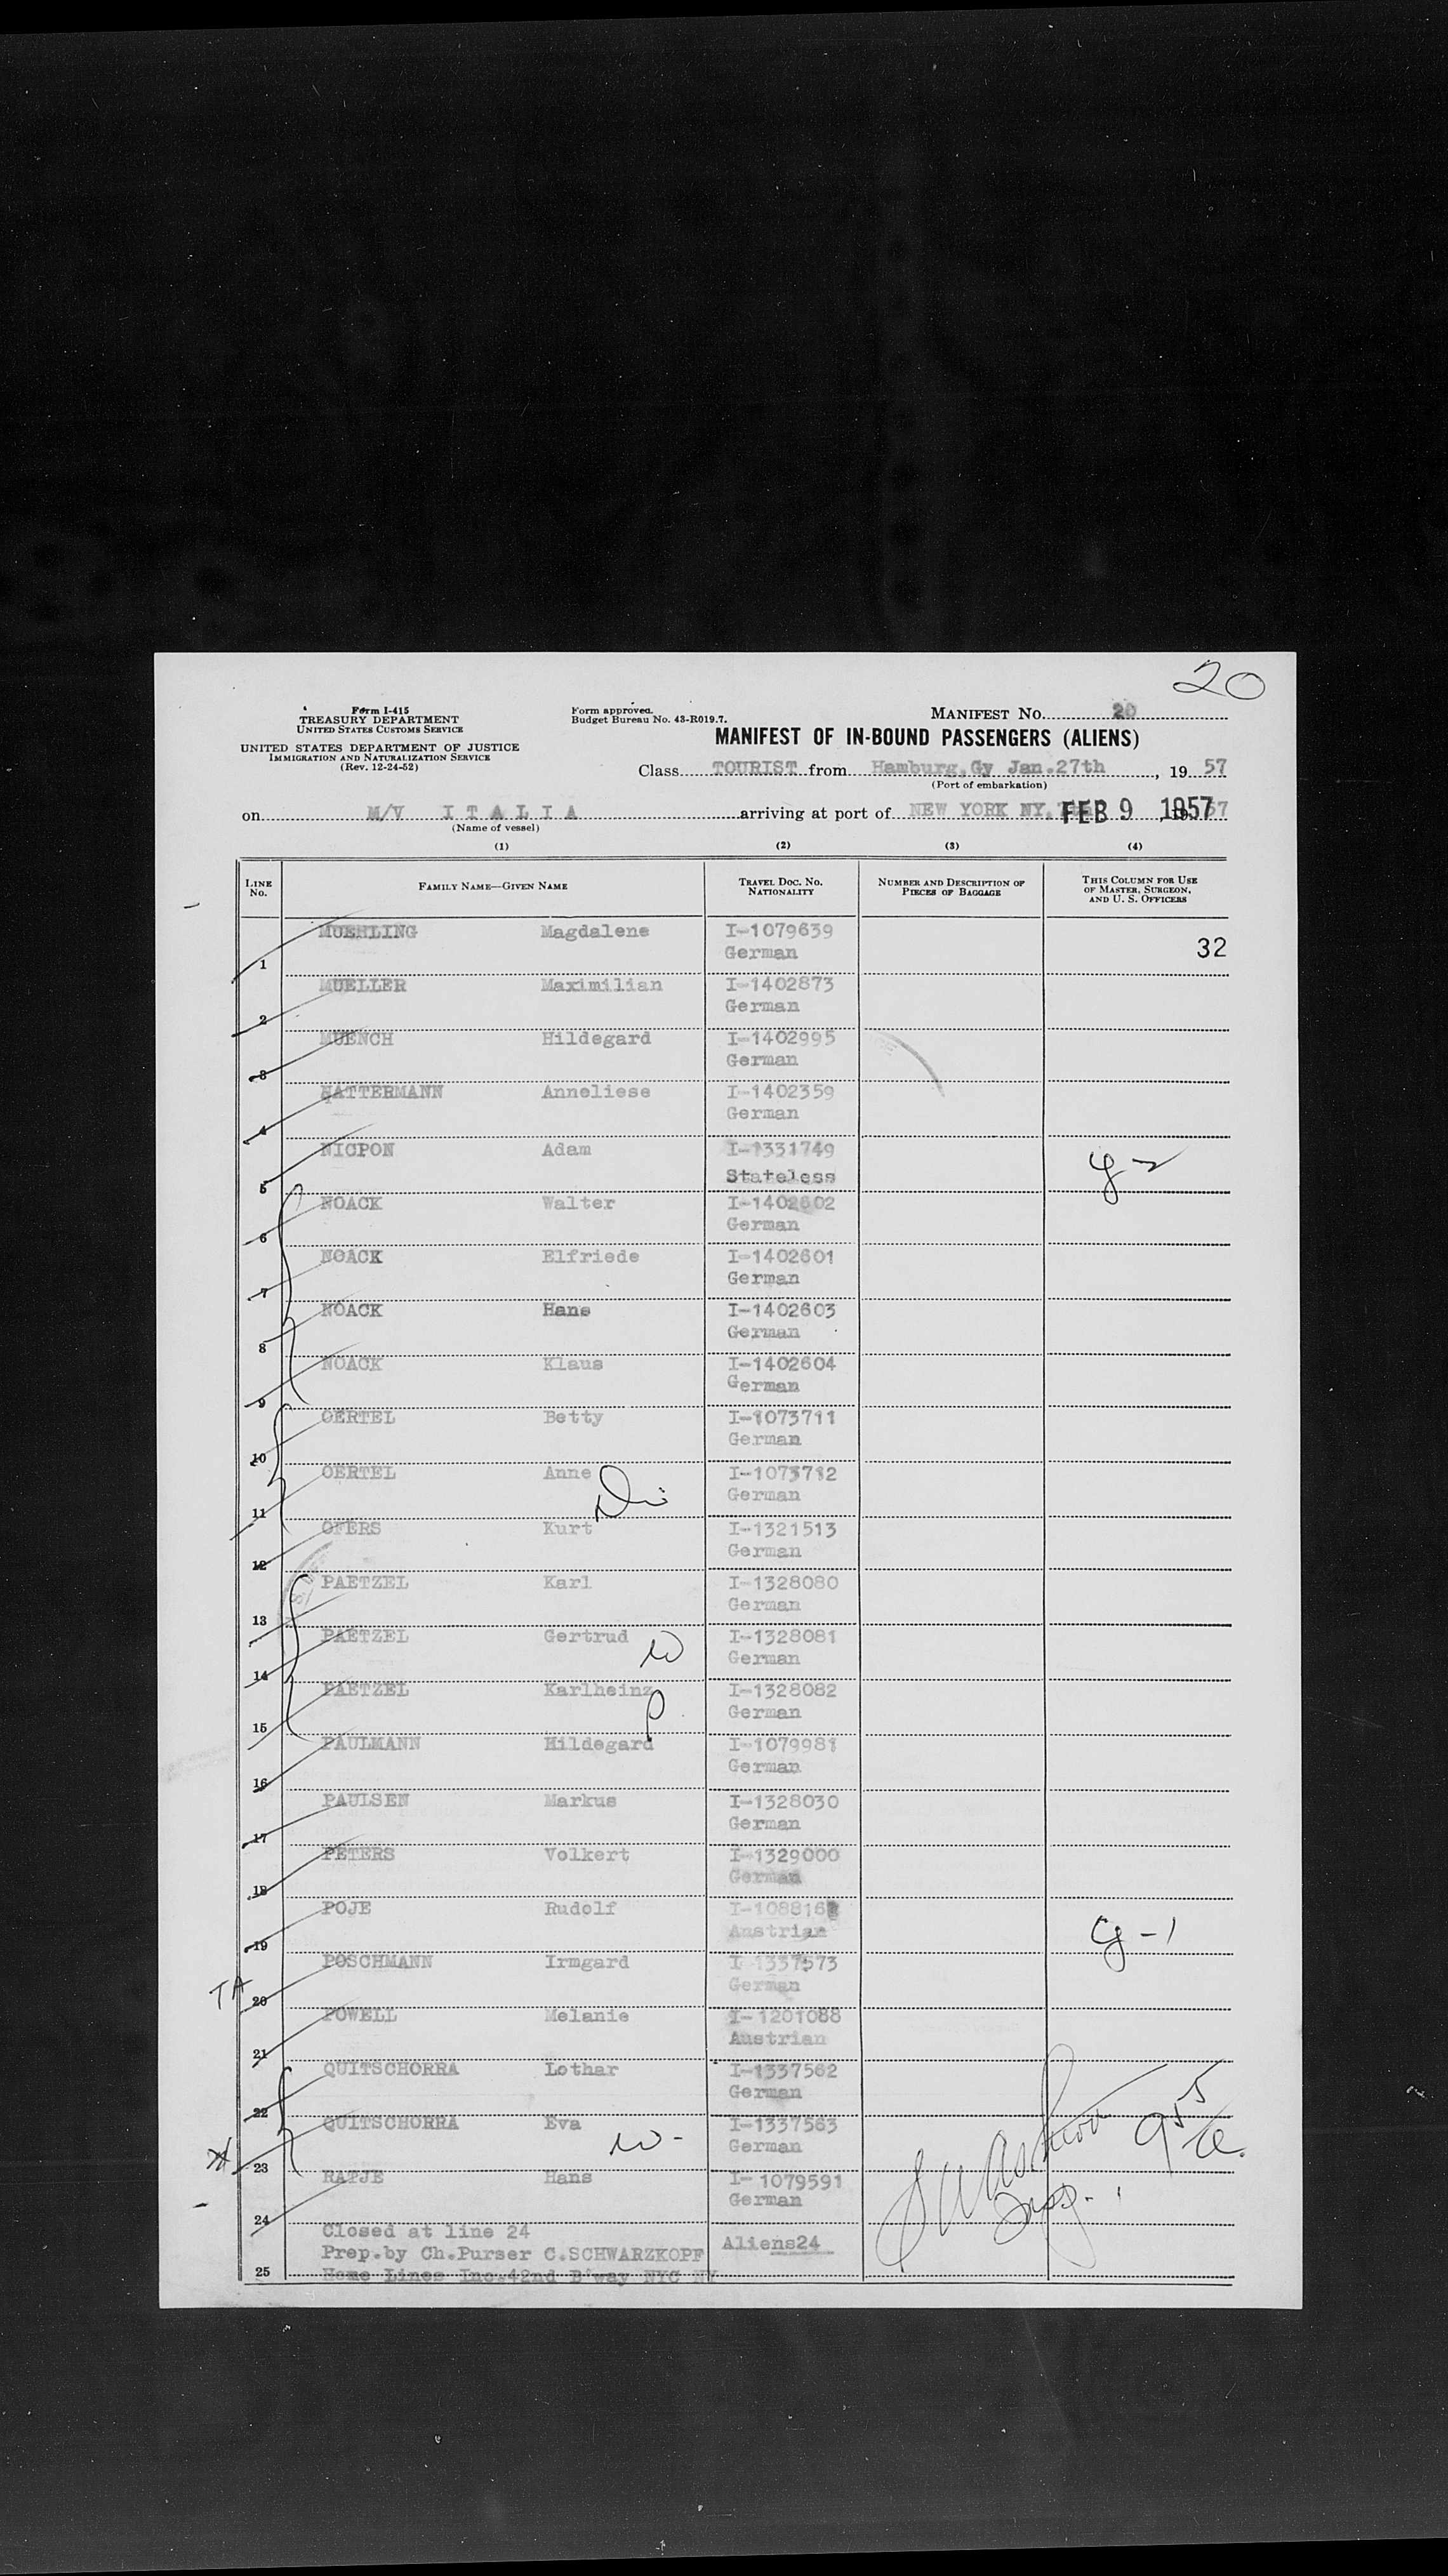 20
Form I-415
TREASURY DEPARTMENT
UNITED STATES CUSTOMS SERVICE
UNITED STATES DEPARTMENT OF JUSTICE
IMMIGRATION AND NATURALIZATION SERVICE
(Rev. 12-24-52)
Form approved.
Budget Bureau No. 43-R019.7.
MANIFEST NO. 20
MANIFEST OF IN-BOUND PASSENGERS (ALIENS)
Class TOURIST from Hamburg,Gy Jan.27th, 19 57
(Port of embarkation)
on M/V ITALIA arriving at port of NEW YORK NY. FEB 9 1957
(Name of vessel)
(1) (2) (3) (4)
LINE NO. FAMILY NAME—GIVEN NAME TRAVEL DOC. NO. NATIONALITY NUMBER AND DESCRIPTION OF PIECES OF BAGGAGE THIS COLUMN FOR USE OF MASTER, SURGEON, AND U. S. OFFICERS
1 MUEHLING Magdalene I-1079639 German 32
2 MUELLER Maximilian I-1402873 German
3 MUENCH Hildegard I-1402995 German
4 NATTERMANN Anneliese I-1402359 German
5 NICPON Adam I-1331749 Stateless
6 NOACK Walter I-1402602 German
7 NOACK Elfriede I-1402601 German
8 NOACK Hans I-1402603 German
9 NOACK Klaus I-1402604 German
10 OERTEL Betty I-1073711 German
11 OERTEL Anne I-1073712 German
12 OFERS Kurt I-1321513 German
13 PAETZEL Karl I-1328080 German
14 PAETZEL Gertrud W I-1328081 German
15 PAETZEL Karlheinz I-1328082 German
16 PAULMANN Hildegard I-1079981 German
17 PAULSEN Markus I-1328030 German
18 PETERS Volkert I-1329000 German
19 POJE Rudolf Austrian
TA 20 POSCHMANN Irmgard I-1337573 German
21 POWELL Melanie I-1201088 Austrian
22 QUITSCHORRA Lothar I-1337562 German
23 QUITSCHORRA Eva W- I-1337563 German
24 RATJE Hans I-1079591 German
Closed at line 24
Prep.by Ch.Purser C.SCHWARZKOPF Aliens24
25 Home Lines Inc.42nd B'way NYC NY